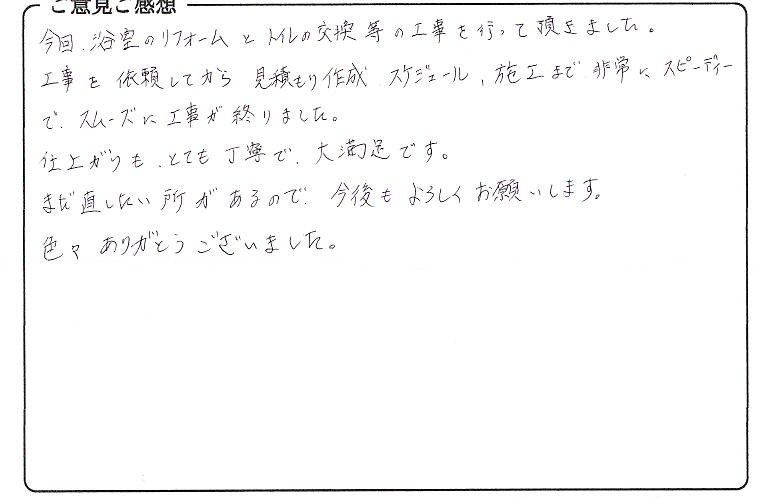 ご意見ご感想
今回、浴室のリフォームとトイレの交換等の工事を行って頂きました。
工事を依頼してから見積もり作成、スケジュール、施工まで非常にスピーディー
で、スムーズに工事が終りました。
仕上がりも、とても丁寧で、大満足です。
まだ直したい所があるので、今後もよろしくお願いします。
色々ありがとうございました。